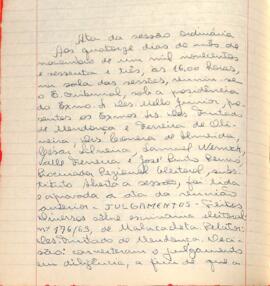 Ata da sessão ordinária
Aos quatorze dias do mês de
novembro de um mil novecentos
e sessenta e três, às 16,00 horas,
na sala das sessões, reuniu-se
o E. Tribunal, sob a presidência
do Exmo. Sr. Des. Mello Junior, pre-
sentes os Exmos. Srs. Des. Furtado
de Mendonça e Ferreira de Oli-
veira, Drs. de Almeida,
Cesar Silveira, Samuel Werneck,
Valle Ferreira e José Pinto Renno,
Procurador Regional eleitoral, subs-
tituto. Aberta a sessão, foi lida
e aprovada a ata da reunião
anterior - JULGAMENTOS - Feitos
Diversos sôbre eleitoral
nº 176/63, de Malacacheta. Relator:
Des. Furtado de Mendonça. Deci-
são: converteram o julgamento
em diligência, a fim de que a